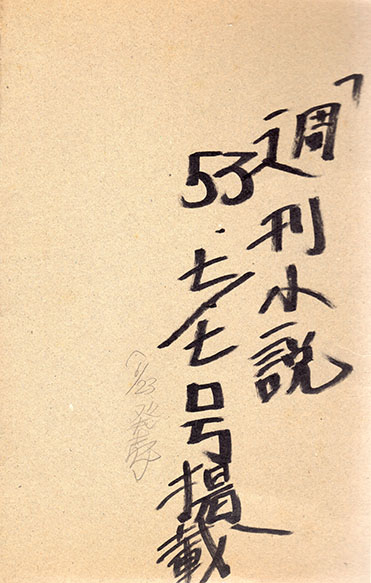 「週刊小説
53・七/七号掲載
(6/23発売)